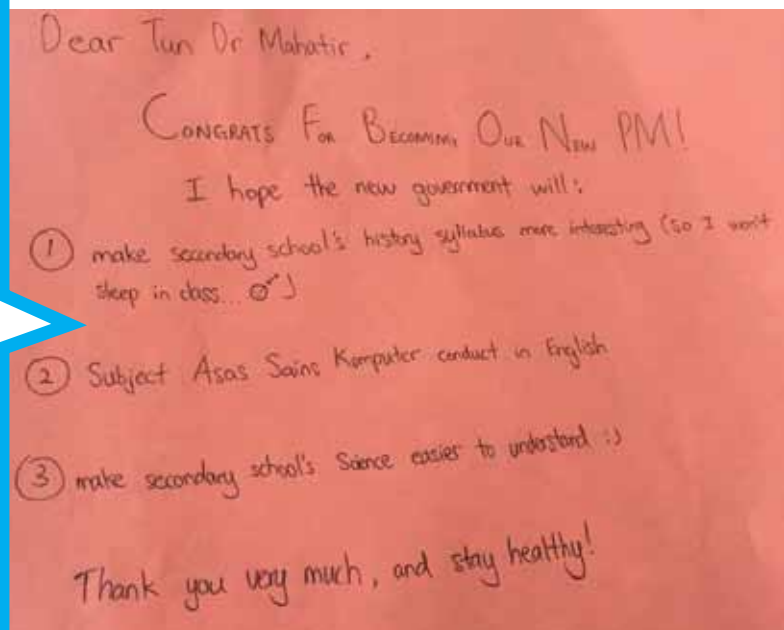 Dear Tun Dr Mahatir,
CONGRATS FOR BECOMING OUR NEW PM!
I hope the new government will:
① make secondary school's history syllabus more interesting (so I won't
sleep in class...
② Subject Asas Sains Komputer conduct in English
③ make secondary school's Science easier to understand :)
Thank you very much, and stay healthy!